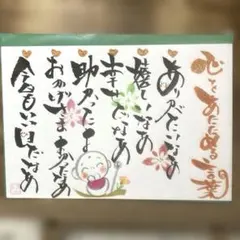 心をあたためる言葉
ありがたいなあ
嬉しいなあ
幸せだなあ
助かったなあ
おかげさまだなあ
今日もいい日だなあ